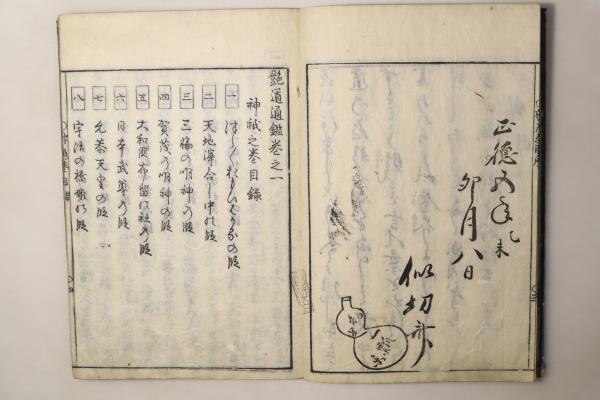 正徳五年乙未
卯月八日
似切斎
艶道通鑑巻之一
神祇之巻目録
一
二 天地渾合し中の段
三 三輪の明神の段
四 賀茂の明神の段
五 大和国布留の社の段
六 日本武尊の段
七 允恭天皇の段
八 宇治の橋姫の段